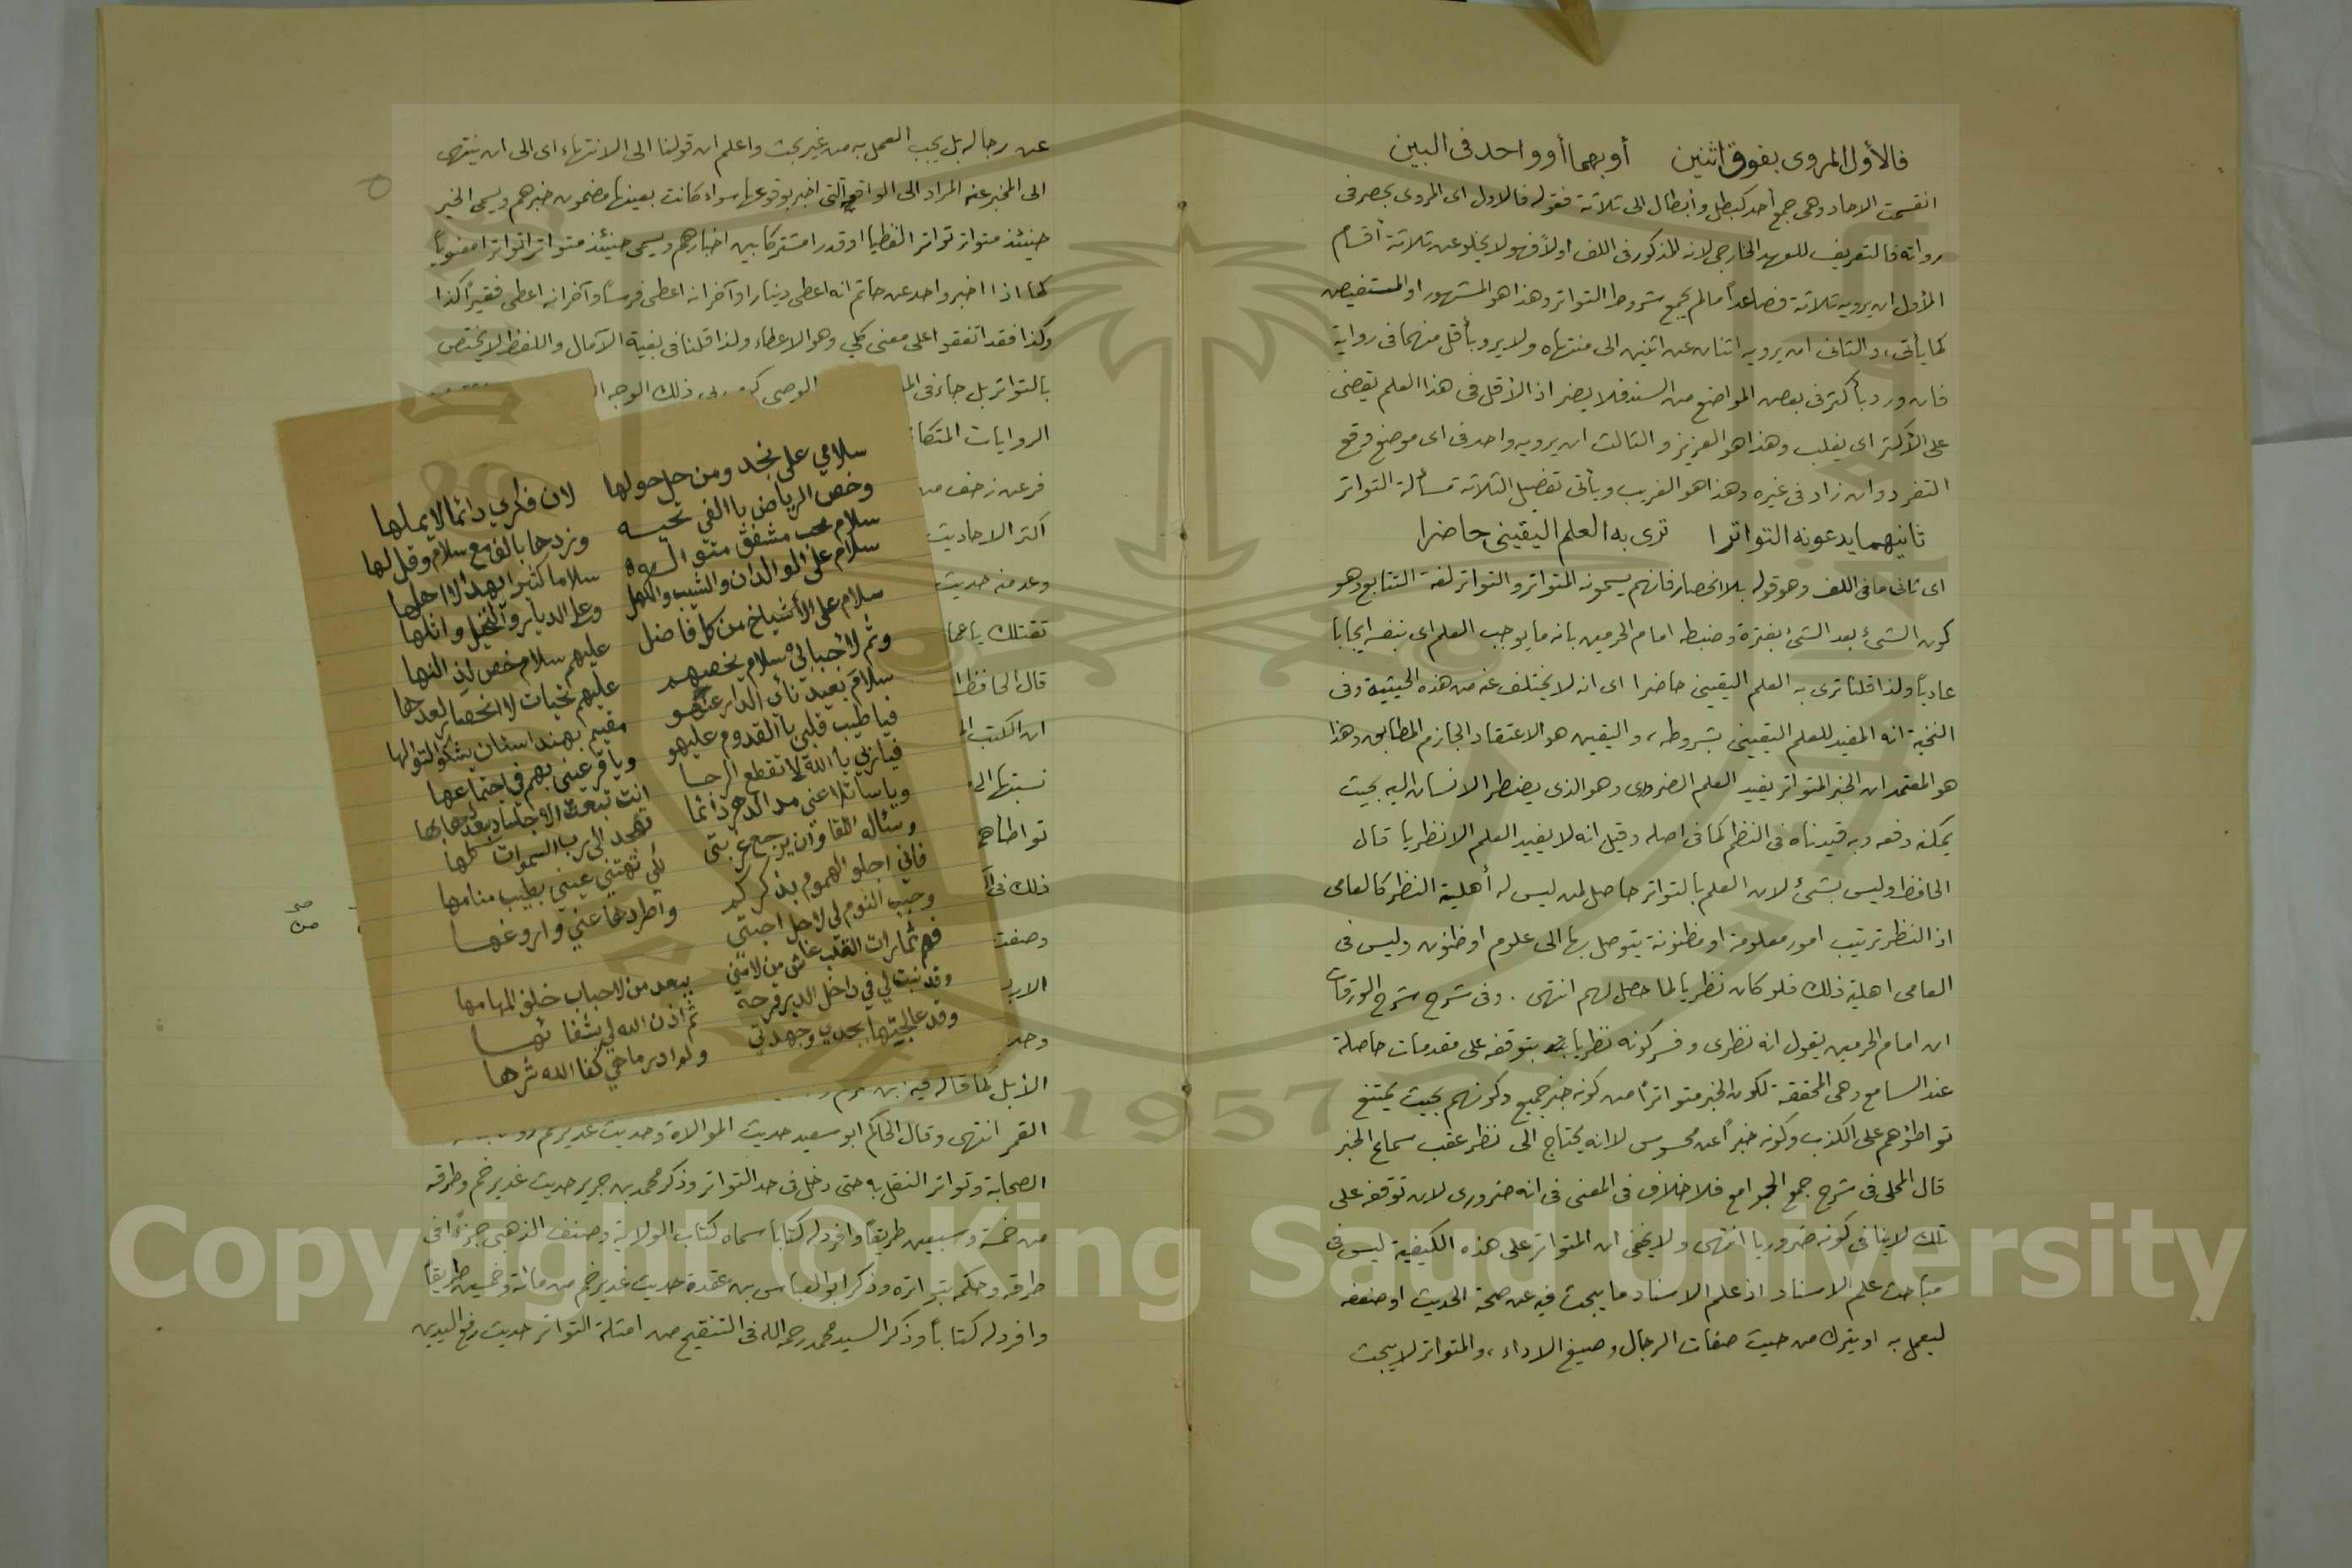 فالأول المروى بفوق اثنين أو بهما أو واحد فى البين
انقسمت الاحاد وهى جمع أحد كبطل وأبطال الى ثلاثة فقوله فالاول اى المروى بحصر فى
رواته فالتعريف للعهد الخارجى لانه المذكور فى اللف اولاً فهو لا يخلو عن ثلاثة أقسام
الأول ان يرويه ثلاثة فصاعداً مالم يجمع شروط التواتر وهذا هو المشهور او المستفيض
كما يأتى، والثانى ان يرويه اثنان عن اثنين الى منتهاه ولا يرو بأقل منهما فى رواية
فان ورد بأكثر فى بعض المواضع من السند فلا يضر اذ الأقل فى هذا العلم يقضى
على الأكثر اى يغلب وهذا هو العزيز والثالث ان يرويه واحد فى اى موضع وقع
التفرد وان زاد فى غيره وهذا هو الغريب ويأتى تفصيل الثلاثة مسألة التواتر
ثانيهما يدعونه التواترا ترى به العلم اليقينى حاضرا
اى ثانى ما فى اللف وهو قوله بلا انحصار فانهم يسمونه المتواتر والتواتر لغة التتابع وهو
كون الشىء بعد الشىء بفترة وضبطه امام الحرمين بانه ما يوجب العلم اى بنفسه ايجابا
عادياً ولذا قلنا ترى به العلم اليقينى حاضرا اى انه لا يختلف عنه من هذه الحيثية وفى
النخبة انه المفيد للعلم اليقينى بشروطه، واليقين هو الاعتقاد الجازم المطابق وهذا
هو المعتمد ان الخبر المتواتر يفيد العلم الضرورى وهو الذى يضطر الانسان اليه بحيث
يمكنه دفعه وبه قيدناه فى النظم كما فى اصله وقيل انه لا يفيد العلم الا نظريا قال
الحافظ وليس بشىء لان العلم بالتواتر حاصل لمن ليس له أهلية النظر كالعامى
اذ النظر ترتيب امور معلومة او مظنونة يتوصل بها الى علوم او ظنون وليس فى
العامى اهلية ذلك فلو كان نظريا لما حصل لهم انتهى . وفى شرح شرح الورقات
ان امام الحرمين يقول انه نظرى وفسر كونه نظريا بتوقفه على مقدمات حاصلة
عند السامع وهى المحققة لكون الخبر متواتراً من كونه خبر جميع وكونهم بحيث يمتنع
تواطؤهم على الكذب وكونه خبراً عن محسوس لا انه يحتاج الى نظر عقب سماع الخبر
قال المحلى فى شرح جمع الجوامع فلا خلاف فى المعنى فى انه ضرورى لان توقفه على
تلك لا ينافى كونه ضروريا انتهى ولا يخفى ان المتواتر على هذه الكيفية ليس فى
مباحث علم الاسناد اذ علم الاسناد ما يبحث فيه عن صحة الحديث او ضعفه
ليعمل به او يترك من حيث صفات الرجال وصيغ الاداء، والمتواتر لا يبحث
عن رجاله بل يجب العمل به من غير بحث واعلم ان قولنا الى الانتهاء اى الى ان ينتهى
الى المخبر عنه المراد الى الواقعة التى اخبر بوقوعها سواء كانت بعينها مضمون خبرهم ويسمى الخبر
حينئذ متواتر تواترا لفظيا او قدرا مشتركا بين اخبارهم ويسمى حينئذ متواترا تواترا معنوياً
كما اذا اخبر واحد عن حاتم انه اعطى دينارا وآخر انه اعطى فرساً وآخر انه اعطى فقيراً كذا
وكذا فقد اتفقوا على معنى كلي وهو الاعطاء ولذا قلنا فى بغية الآمال واللفظ لا يختص
بالتواتر بل جاء فى الوصى ذلك الوجه
الروايات المتكا
فرعن زحف من
اكثر الاحاديث
وعد منه حديث
تقتلك يا عما
قال الحافظ
ان الكتب
نسبتها الى
تواطأهم
ذلك فى
وصفت
وحد
الأبل كما قاله فيه
القمر انتهى وقال الحاكم ابو سعيد حديث الموالاة وحديث غدير خم
الصحابة وتواتر النقل به حتى دخل فى حد التواتر وذكر محمد بن جرير حديث غدير خم وطرقه
من خمسة وسبعين طريقاً وافرد له كتابا سماه كتاب الولاية وصنف الذهبى جزءً فى
طرقه وحكم بتواتره وذكر ابو العباس بن عقدة حديث غدير خم من مائة وخمسين طريقاً
وافرد له كتاباً وذكر السيد محمد رحمه الله فى التنقيح من امثلة التواتر حديث رفع اليدين
سلامي على نجد ومن حل حولها لان فكري دائما لا يملها
وخص الرياض يا الفي تحيه وزدها بالف مع سلام وقل لها
سلام محب مشفق سلاما كثيرا بهدا لاهلها
سلام على الوالدان والشيب والكهل وعلى الديار والنخيل واثلها
سلام على الأشياخ من كل فاضل عليهم سلام خص
وثم لأحبابي سلام يخصهم عليهم تحيات لا انحصار لعدها
سلام بعيد نائي الدار عنهمو مقيم بهندستان يشكو
فيا طيب قلبي بالقدوم عليهمو ويا قر عيني بهم في اجتماعها
فيا ربي يا الله لا تقطع الرجا انت تبعث
ويا سائلا عني مدا الدهر دائما تهجد الى رب السموات كلها
وسئاله اللقا وان يرجع غربتي لكي تهتني عيني بطيب منامها
فاني اجلو الهموم بذكركم واطردها عني
وحبب النوم لي لاجل احبتي
يبعد من لاحباب خلف المهامها
وقد نبت لي في داخل الدير قرحة ثم اذن الله لي بشفائها
وقد عالجتها بجدي وجهدتي ولم ادر ماهي كفا الله شرها
Copyright © King Saud University
1957